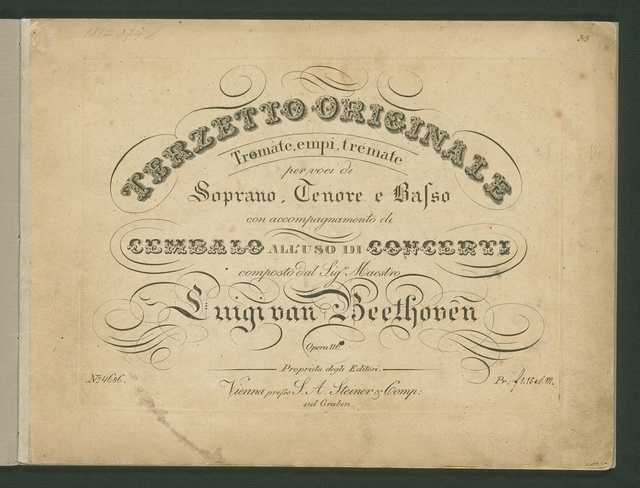 38
TERZETTO ORIGINALE
Tromate, empi, tremate
per voci di
Soprano, Tenore e Baſso
con accompagnamento di
CEMBALO ALL'USO DI CONCERTI
composto dal Sigr. Maestro
Luigi van Beethoven
Opera 116.
Proprietà degli Editori.
No. 4686.
Vienna preſso S. A. Steiner & Comp:
sul Graben.